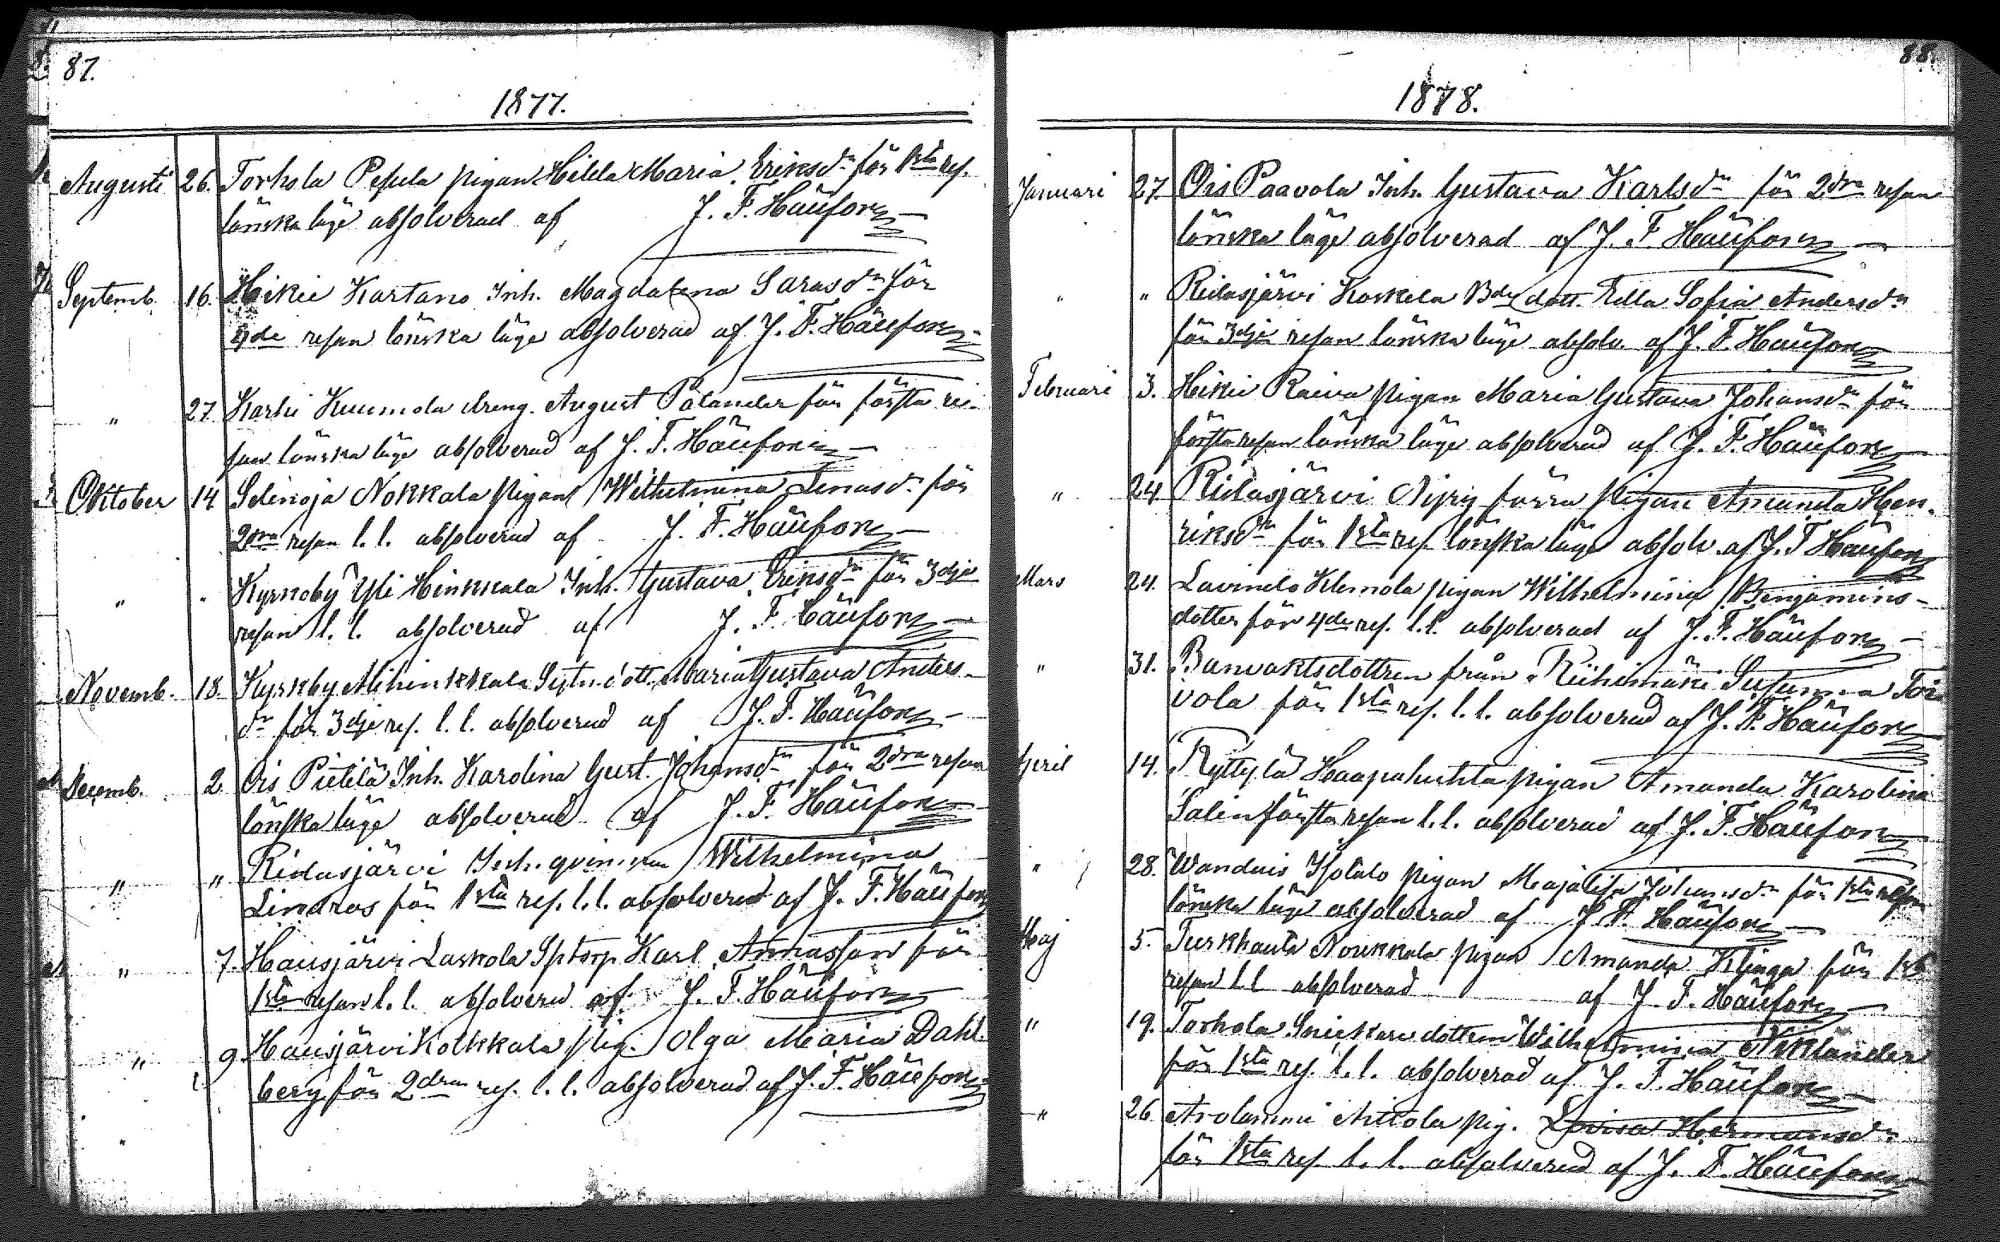 87.
1877.
Augusti 26. Torhola Pesula pigan Hilda Maria Eriksdr för 1sta res.
lönska läge absolverad af J. F. Häuforss
Septemb. 16. Hikiä Kartano Inh. Magdalena Sarasdr för
4de resan lönska läge absolverad af J. F. Häuforss
" 27. Karhi Kuumola dreng. August Palander för första re-
san lönska läge absolverad af J. F. Häuforss
Oktober 14 Selinoja Nokkala pigan Wilhelmina Linasdr för
2dra resan l. l. absolverad af J. F. Häuforss
" " Kyrkoby Yli Hinkkala Inh. Gustava Eriksdr för 3dje
resan l. l. absolverad af J. F. Häuforss
Novemb. 18. Kyrkby Alihinkkala Sytn. dott. Maria Gustava Anders-
dr för 3dje res. l. l. absolverad af J. F. Häuforss
Decemb. 2. Ois Pietilä Inh. Karolina Gust. Johansdr för 2dra resan
lönska läge absolverad af J. F. Häuforss
" " Ridasjärvi Inh. qvinnan Wilhelmina
Lindros för 1sta res. l. l. absolverad af J. F. Häuforss
" 7. Hausjärvi Laskola Sptorp Karl Annasson för
1sta resan l. l. absolverad af J. F. Häuforss
" 9. Hausjärvi Kolkkala pig. Olga Maria Dahl-
berg för 2dra res. l. l. absolverad af J. F. Häuforss
"
88.
1878.
Januari 27. Ois Paavola Inh. Gustava Karlsdr för 2dra resan
lönska läge absolverad af J. F. Häuforss
" " Ridasjärvi Koskela Bde dott. Edla Sofia Andersdr
för 3dje resan lönska läge absolv. af J. F. Häuforss
Februari 3. Hikiä Raiva pigan Maria Gustava Johansdr för
första resan lönska läge absolverad af J. F. Häuforss
" 24. Ridasjärvi Nyry förra pigan Amanda Hen-
riksdr för 1sta res. lönska läge absolv. af J. F. Häuforss
Mars 24. Lavinto Klemola pigan Wilhelmina Benjamins-
dotter för 4de res. l. l. absolverad af J. F. Häuforss
" 31. Banvaktsdottren från Riihimäki Susanna Toi-
vola för 1sta res. l. l. absolverad af J. F. Häuforss
April 14. Ryttylä Haapahuhta pigan Amanda Karolina
Salin första resan l. l. absolverad af J. F. Häuforss
" 28. Wandais Isotalo pigan Majalisa Johansdr för 1sta resan
lönska läge absolverad af J. F. Häuforss
Maj 5. Turkhauta Noukkala pigan Amanda Klinga för 1sta
resan l. l. absolverad af J. F. Häuforss
" 19. Torhola Snickare dottren Wilhelmina Niklander
för 1sta res. l. l. absolverad af J. F. Häuforss
" 26. Arolammi Anttola pig. Lovisa Hermansdr
för 1sta res. l. l. absolverad af J. F. Häuforss